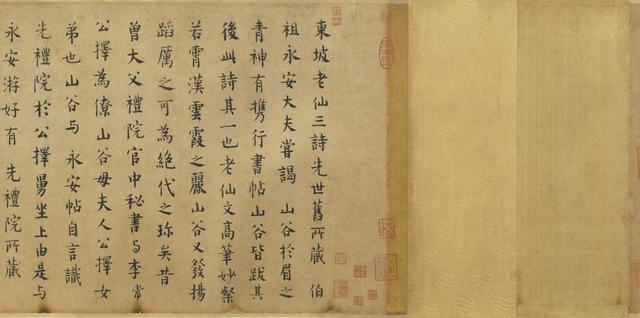 東坡老仙三詩先世舊所藏 伯
祖永安大夫嘗謁 山谷於眉之
青神有攜行書帖山谷皆跋其
後此詩其一也老仙文高筆妙粲
若霄漢雲霞之麗山谷又發揚
蹈厲之可為絕代之珍矣昔
曾大父禮院官中秘書與李常
公擇為僚山谷母夫人公擇女
弟也山谷與 永安帖自言識
先禮院於公擇舅坐上由是與
永安游好有 先禮院所藏